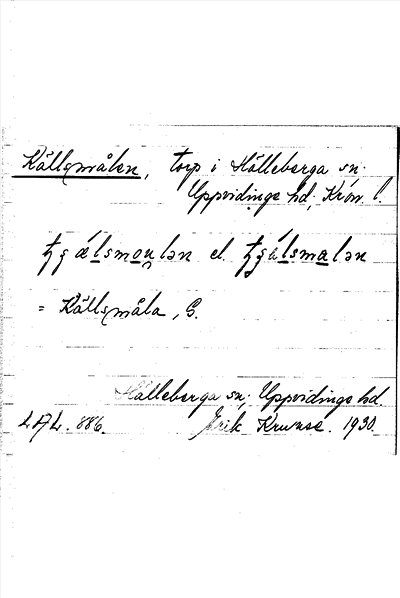 Källsmålen, torp i Hälleberga sn.
Uppvidinge hd, Kron. l.
tʒälsmoulən el. tʒälsmalən
= Källsmåla, G.
Hälleberga sn; Uppvidinge hd.
LAL. 886. Erik Kruuse. 1930.